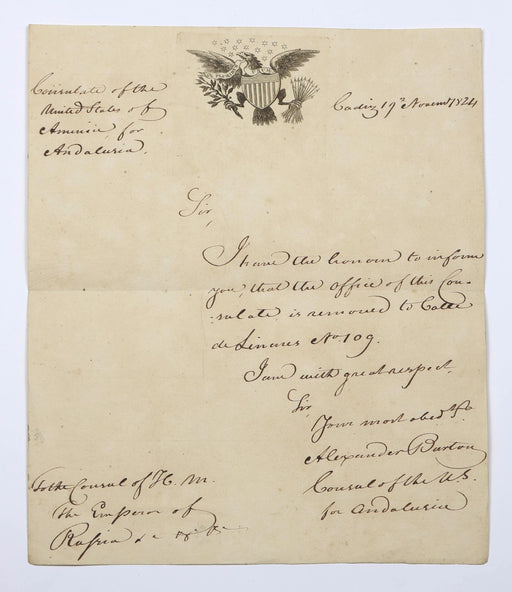 Consulate of the
United States of
America, for
Andalusia.
Cadiz 19th Novem 1824
Sir,
I have the honour to inform
you, that the office of this Con-
sulate is removed to Calle
de Linares No 109.
I am with great respect.
Sir
Your most obed
Alexander Burton
Consul of the U.S.
for Andalusia
To the Consul of H. M.
The Emperor of
Russia &c &c &c